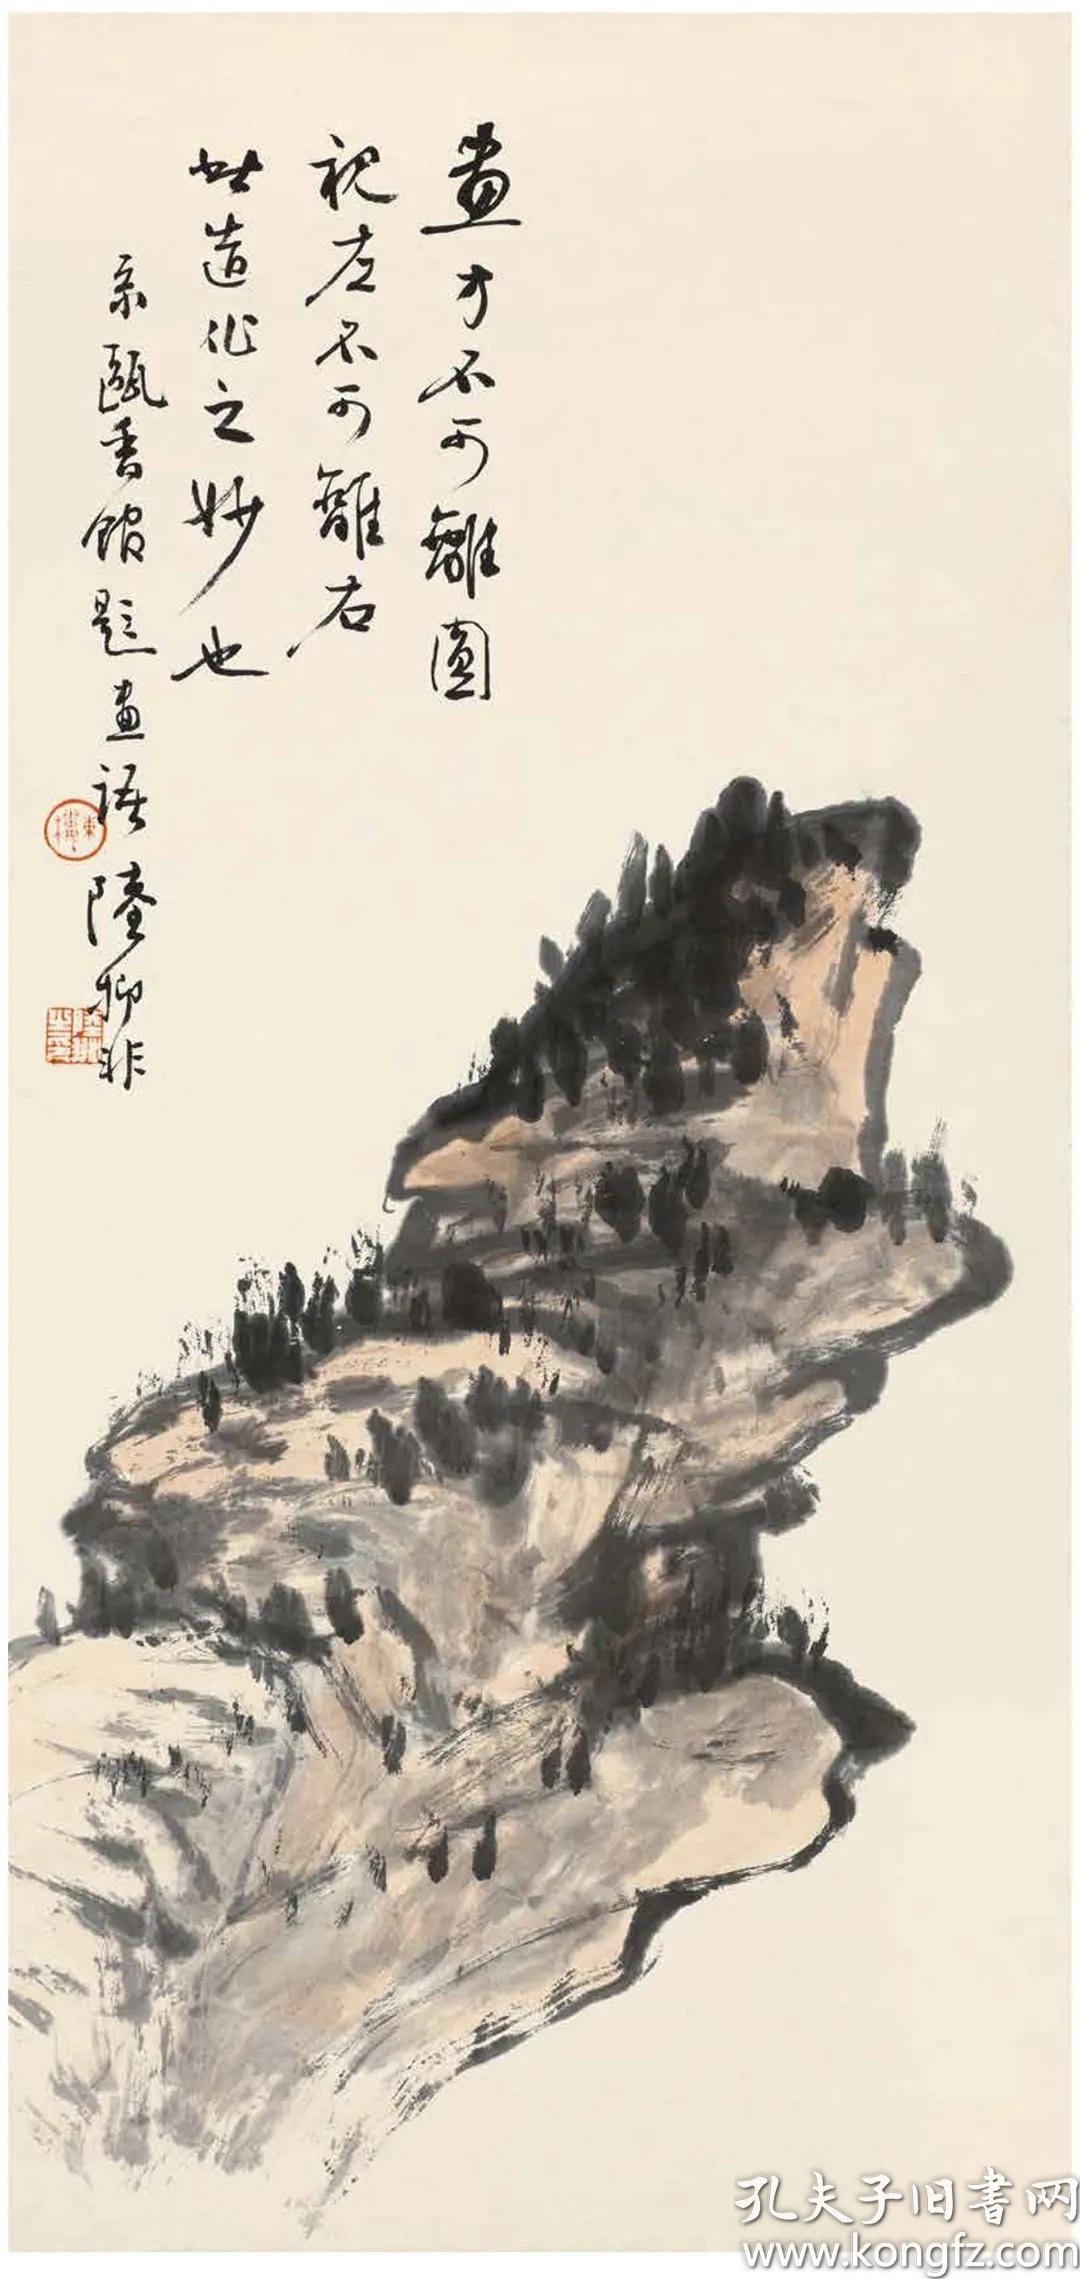 畫方不可離圓
視左不可離右
此造化之妙也
录甌香館題畫語 陸抑非
孔夫子旧书网
www.kongfz.com